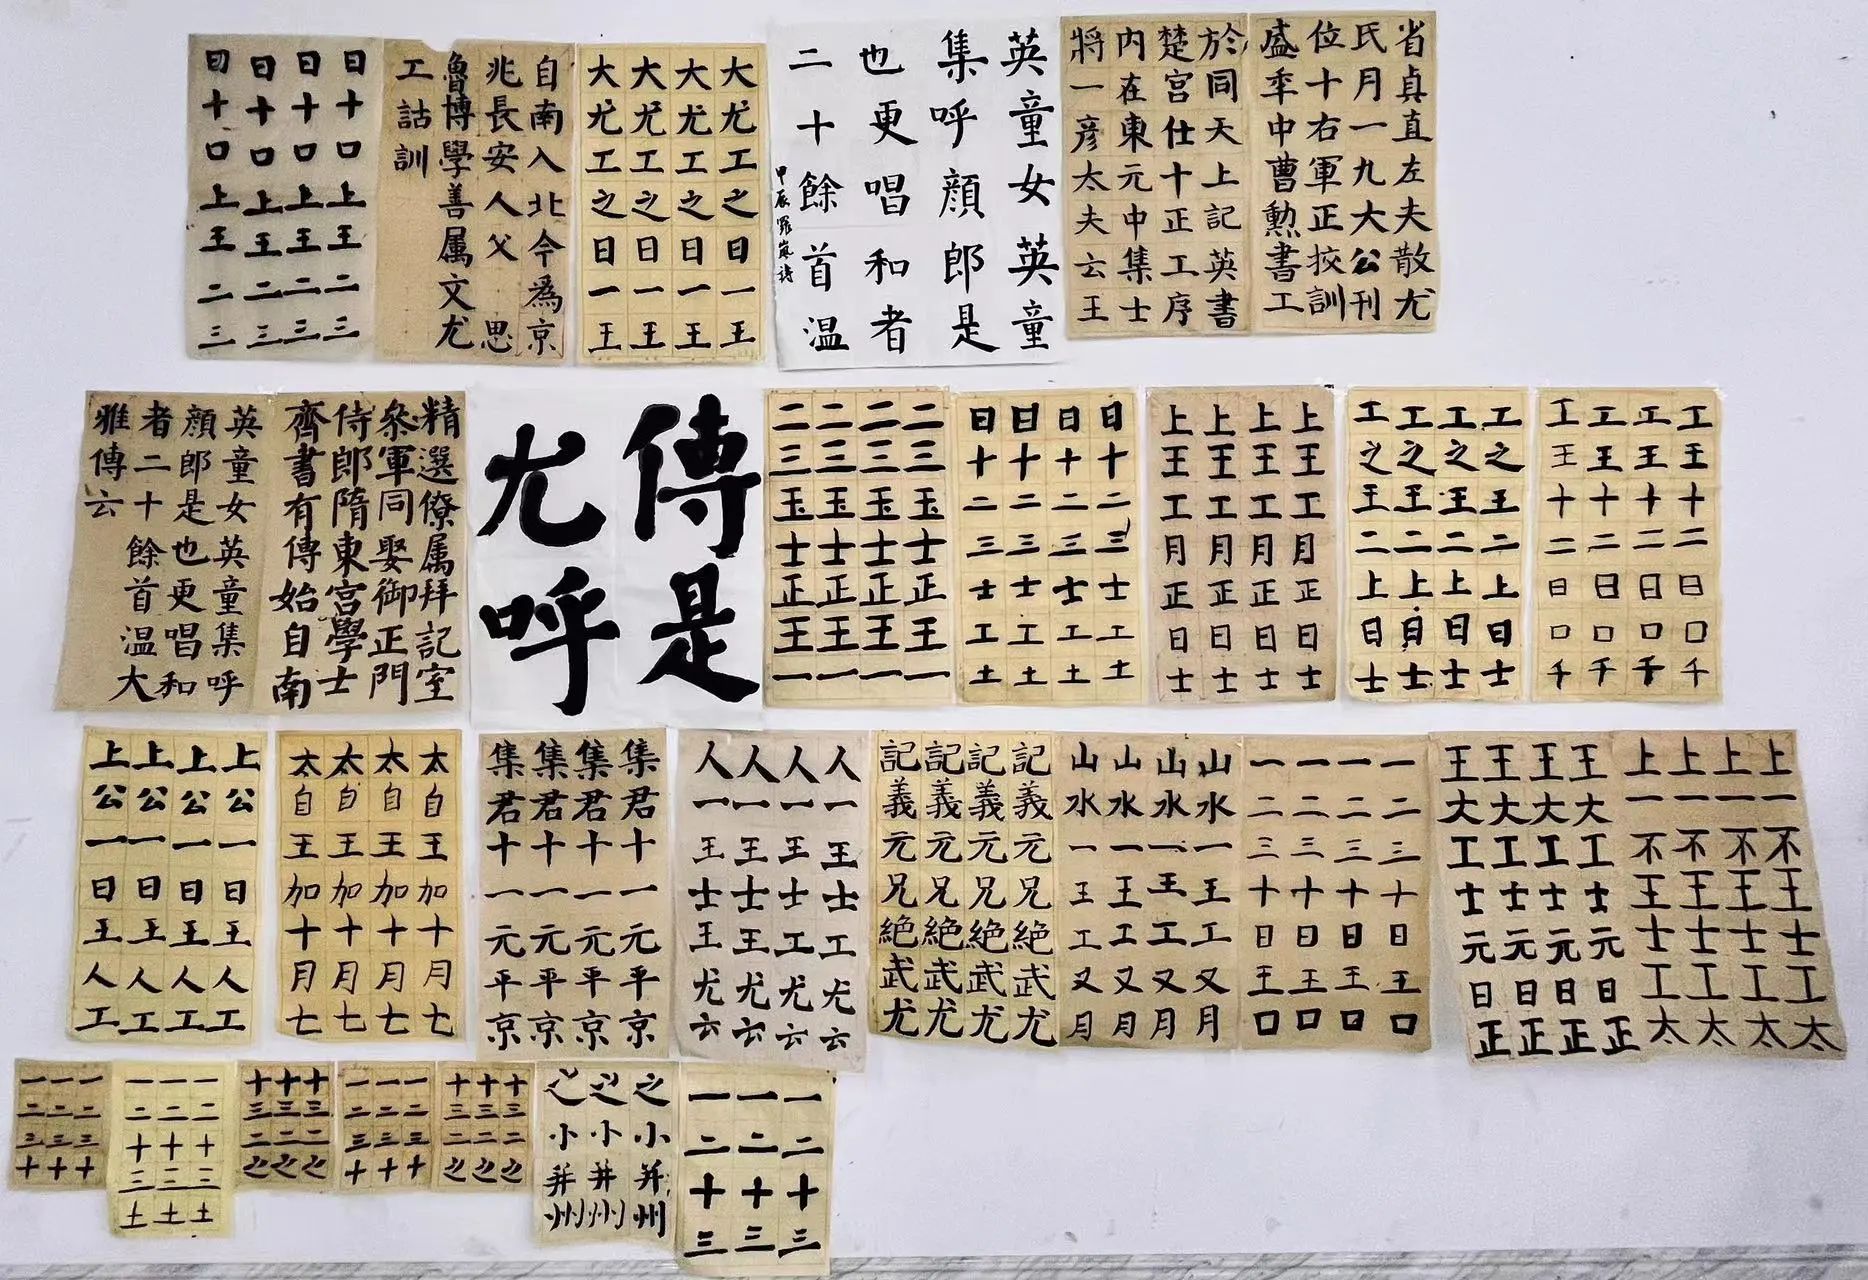 省真直左夫散尤
氏月一九大公刊
位十右軍正挍訓
盛季中曹勲書工
於同天上記英書
楚宮仕十正工序
内在東元中集士
將一彦太夫云王
英童女英童
集呼顔郎是
也更唱和者
二十餘首温
甲辰羅嵐詩
大尤工之日一王
大尤工之日一王
大尤工之日一王
大尤工之日一王
自南入北今為京
兆長安人父思
魯博學善属文尤
工詁訓
日十口上王二三
日十口上王二三
日十口上王二三
日十口上王二三
工王十二日口千
工王十二日口千
工王十二日口千
工王十二日口千
工之王二上日士
工之王二上日士
工之王二上日士
工之王二上日士
上王工月正日士
上王工月正日士
上王工月正日士
上王工月正日士
日十二三士工土
日十二三士工土
日十二三士工土
日十二三士工土
二三玉士正王一
二三玉士正王一
二三玉士正王一
二三玉士正王一
傳是
尤呼
精選僚属拜記室
叅軍同娶御正門
侍郎隋東宮學士
齊書有傳始自南
英童女英童集呼
顔郎是也更唱和
者二十餘首温大
雅傳云
上一不王士工太
上一不王士工太
上一不王士工太
上一不王士工太
王大工士元日正
王大工士元日正
王大工士元日正
王大工士元日正
一二三十日王口
一二三十日王口
一二三十日王口
一二三十日王口
山水一王工又月
山水一王工又月
山水一王工又月
山水一王工又月
記義元兄絶武尤
記義元兄絶武尤
記義元兄絶武尤
記義元兄絶武尤
人一王士工尤云
人一王士工尤云
人一王士王尤云
人一王士王尤云
集君十一元平京
集君十一元平京
集君十一元平京
集君十一元平京
太自王加十月七
太自王加十月七
太自王加十月七
太自王加十月七
上公一日王人工
上公一日王人工
上公一日王人工
上公一日王人工
一二十三
一二十三
一二十三
之小并州
之小并州
之小并州
十三二之
十三二之
十三二之
一二三十
一二三十
一二三十
十三二之
十三二之
十三二之
一二十三土
一二十三土
一二十三土
一二三十
一二三十
一二三十